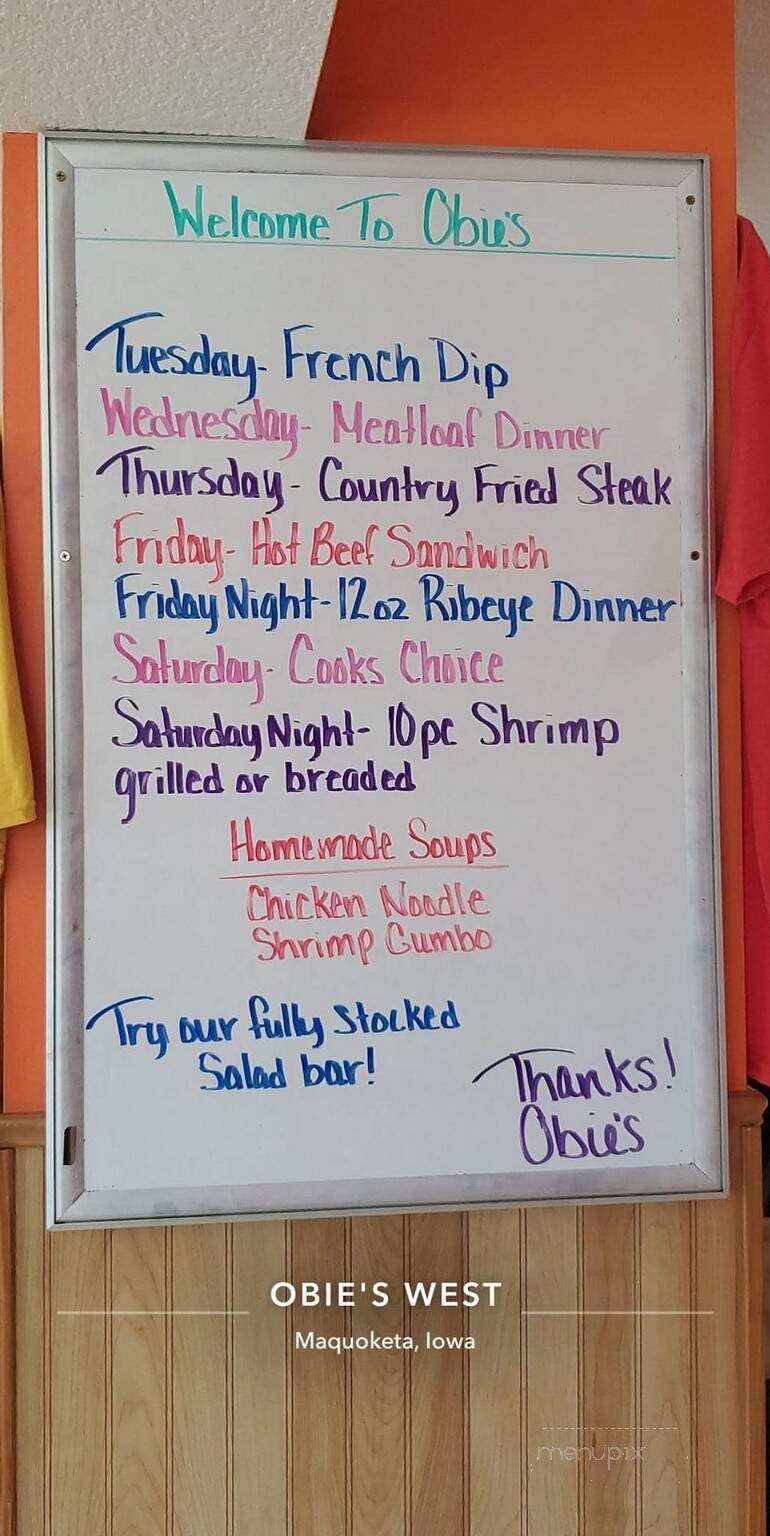 Welcome To Obie's
Tuesday- French Dip
Wednesday- Meatloaf Dinner
Thursday- Country Fried Steak
Friday- Hot Beef Sandwich
Friday Night-12oz Ribeye Dinner
Saturday- Cooks Choice
Saturday Night- 10pc Shrimp
grilled or breaded
Homemade Soups
Chicken Noodle
Shrimp Gumbo
Try our fully stocked
Salad bar!
Thanks!
Obie's
OBIE'S WEST
Maquoketa, Iowa
menupix